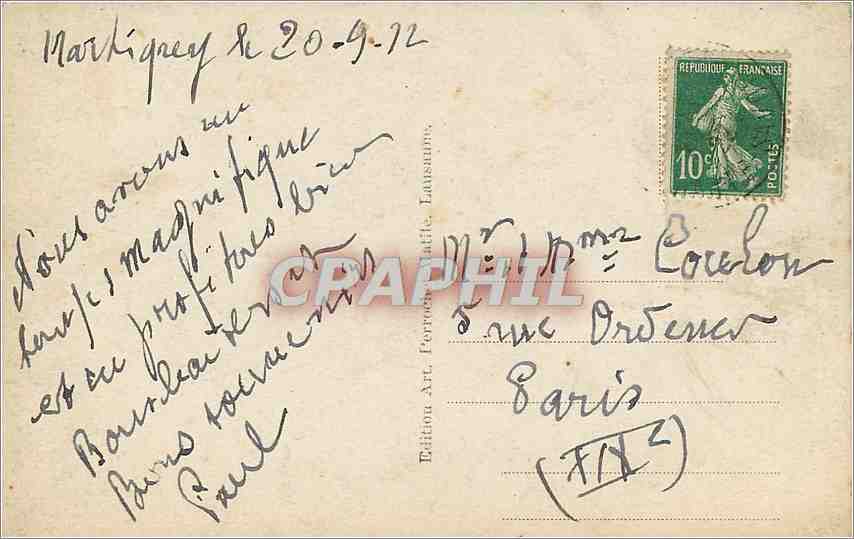 Martigny le 20-9-12
Nous avons un
temps magnifique
et en profitons bien
Bons souvenirs
Paul
Edition Art. Perrochet-Matile, Lausanne.
REPUBLIQUE FRANÇAISE
10c
POSTES
CPAPHIL
Mr & Mme Couchon
5 rue Ordener
Paris
(XIXe)